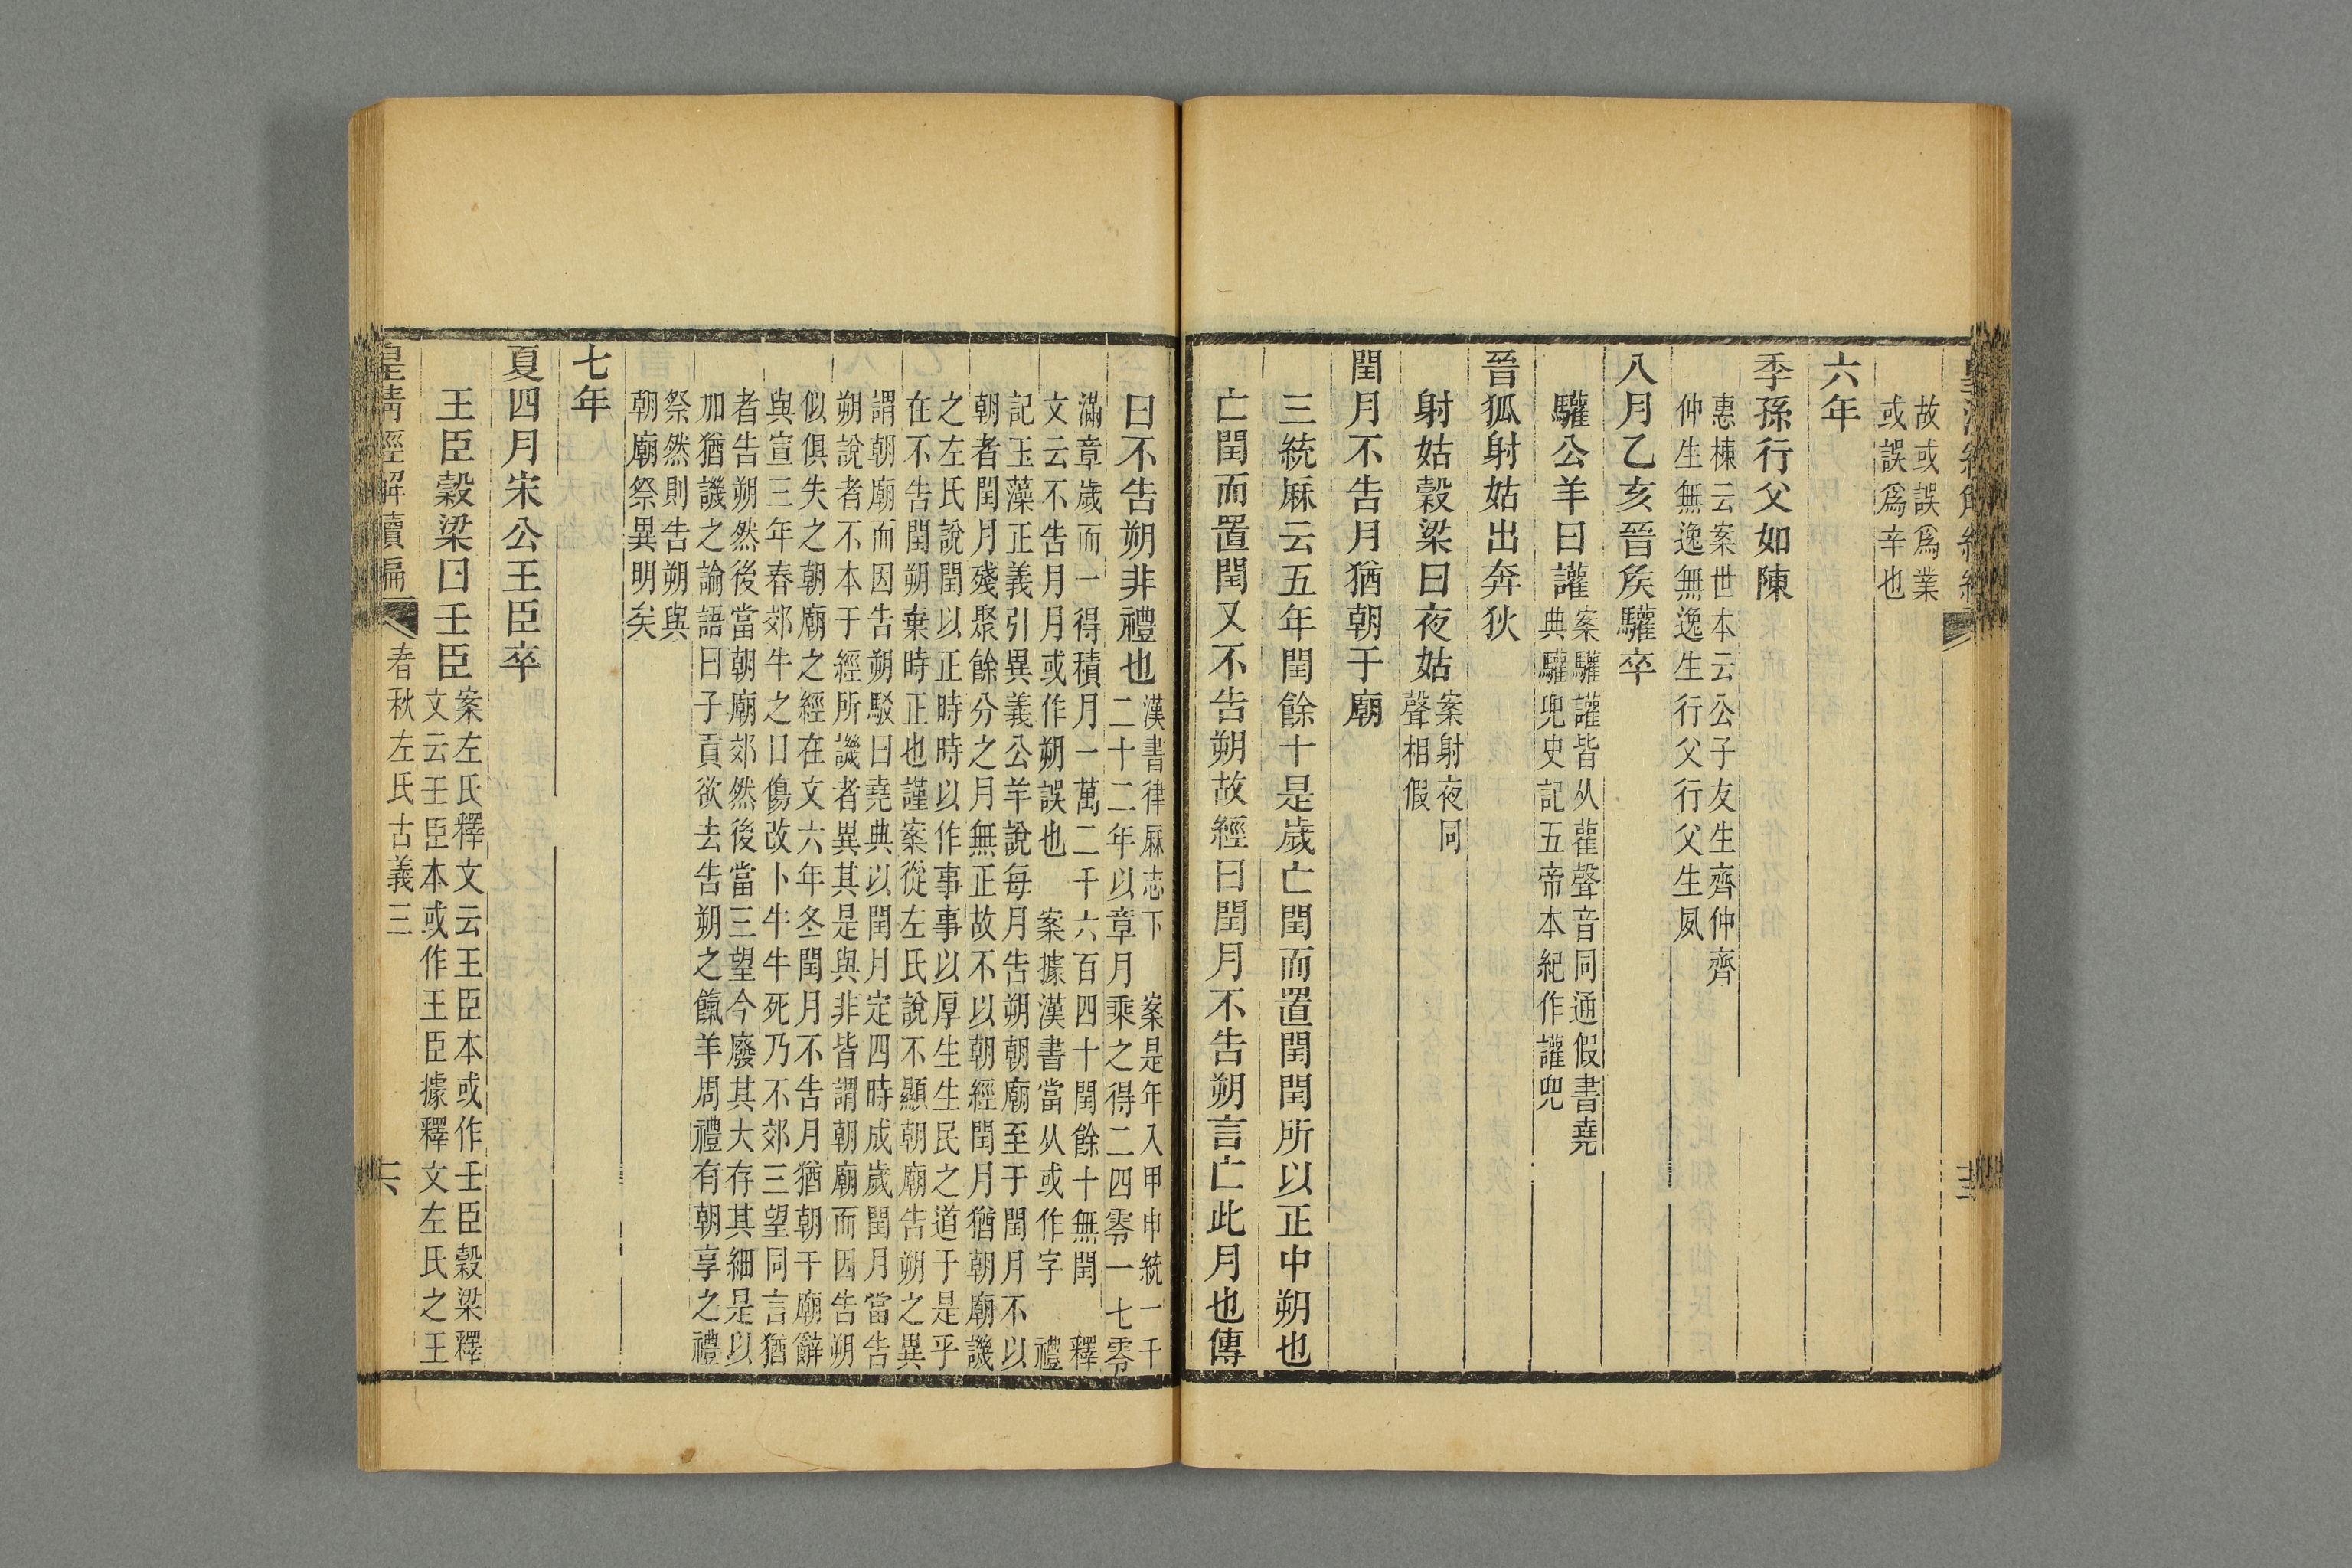 故或誤爲業
或誤爲辛也
六年
季孫行父如陳
惠棟云案世本云公子友生齊仲齊
仲生無逸無逸生行父行父生夙
八月乙亥晉矦驩卒
驩公羊曰讙
案驩讙皆从雚聲音同通假書堯
典驩兜史記五帝本紀作讙兜
晉狐射姑出奔狄
射姑穀梁曰夜姑
案射夜同
聲相假
閏月不告月猶朝于廟
三統厤云五年閏餘十是歲亡閏而置閏閏所以正中朔也
亡閏而置閏又不告朔故經曰閏月不告朔言亡此月也傳
曰不告朔非禮也
漢書律厤志下 案是年入甲申統一千
二十二年以章月乘之得二四零一七零
滿章歲而一得積月一萬二千六百四十閏餘十無閏 釋
文云不告月月或作朔誤也 案據漢書當从或作字 禮
記玉藻正義引異義公羊說每月告朔朝廟至于閏月不以
朝者閏月殘聚餘分之月無正故不以朝經閏月猶朝廟譏
之左氏說閏以正時時以作事事以厚生生民之道于是乎
在不告閏朔棄時正也謹案從左氏說不顯朝廟告朔之異
謂朝廟而因告朔駁曰堯典以閏月定四時成歲閏月當告
朔說者不本于經所譏者異其是與非皆謂朝廟而因告朔
似俱失之朝廟之經在文六年冬閏月不告月猶朝于廟辭
與宣三年春郊牛之口傷改卜牛牛死乃不郊三望同言猶
者告朔然後當朝廟郊然後當三望今廢其大存其細是以
加猶譏之論語曰子貢欲去告朔之餼羊周禮有朝享之禮
祭然則告朔與
朝廟祭異明矣
七年
夏四月宋公王臣卒
王臣穀梁曰壬臣
案左氏釋文云王臣本或作壬臣穀梁釋
文云壬臣本或作王臣據釋文左氏之王
皇清經解續編
春秋左氏古義三
六